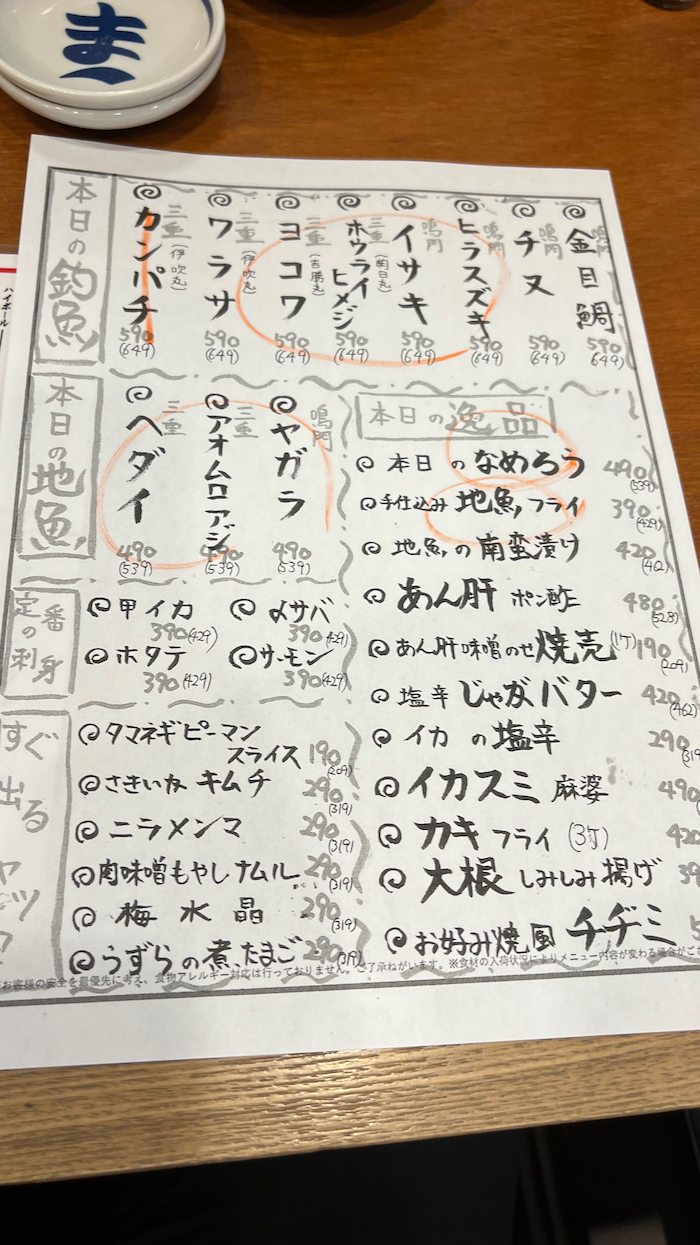 ま
ハイボール
本日の釣魚
金目鯛 鳴門 590 (649)
チヌ 鳴門 590 (649)
ヒラスズキ 鳴門 590 (649)
イサキ 鳴門 590 (649)
ホウライヒメジ 三重 590 (649)
ヨコワ 三重 (吉勝丸) 590 (649)
ワラサ 三重 (伊吹丸) 590 (649)
カンパチ 三重 (伊吹丸) 590 (649)
本日の地魚
ヤガラ 鳴門 490 (539)
アオムロアジ 三重 490 (539)
ヘダイ 三重 490 (539)
定番の刺身
甲イカ 390 (429)
〆サバ 390 (429)
ホタテ 390 (429)
サーモン 390 (429)
すぐ出る
タマネギピーマン
スライス 190 (209)
さきいか キムチ 290 (319)
ニラメンマ 290 (319)
肉味噌もやしナムル 290 (319)
梅水晶 290 (319)
うずらの煮たまご 290 (319)
本日の逸品
本日のなめろう 490 (539)
手仕込み 地魚フライ 390 (429)
地魚の南蛮漬け 420 (462)
あん肝 ポン酢 480 (528)
あん肝味噌のせ焼売 (1ケ) 190 (209)
塩辛じゃがバター 420 (462)
イカの塩辛 290 (319
イカスミ麻婆 490
カキフライ (3ケ) 420
大根しみしみ揚げ 39
お好み焼風チヂミ 5
お客様の安全を最優先に考え、食物アレルギー対応は行っておりません。ご了承ねがいます。※食材の入荷状況によりメニュー内容が変わる場合がござ